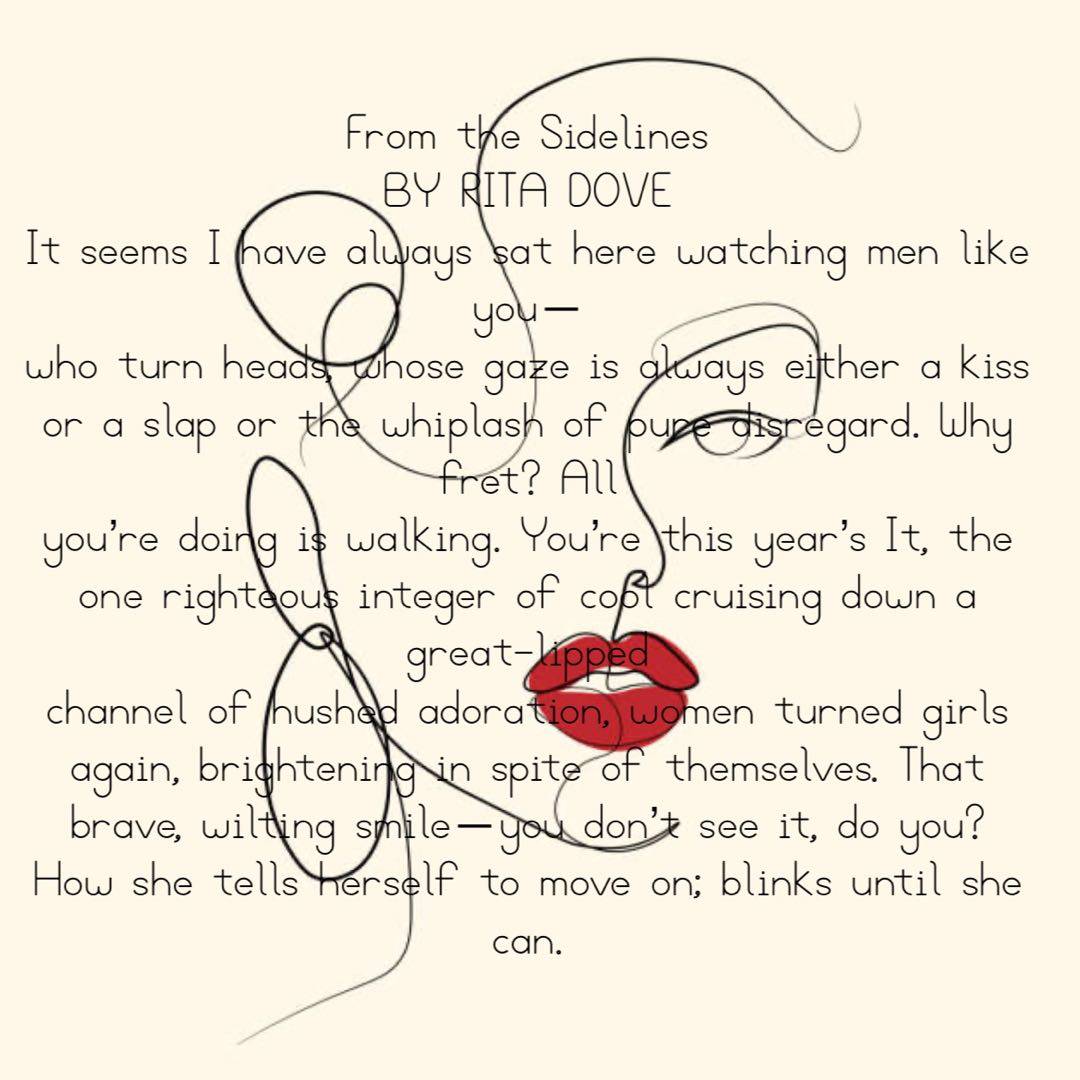 From the Sidelines
BY RITA DOVE
It seems I have always sat here watching men like
you—
who turn heads, whose gaze is always either a kiss
or a slap or the whiplash of pure disregard. Why
fret? All
you’re doing is walking. You’re this year’s It, the
one righteous integer of cool cruising down a
great-lipped
channel of hushed adoration, women turned girls
again, brightening in spite of themselves. That
brave, wilting smile—you don’t see it, do you?
How she tells herself to move on; blinks until she
can.